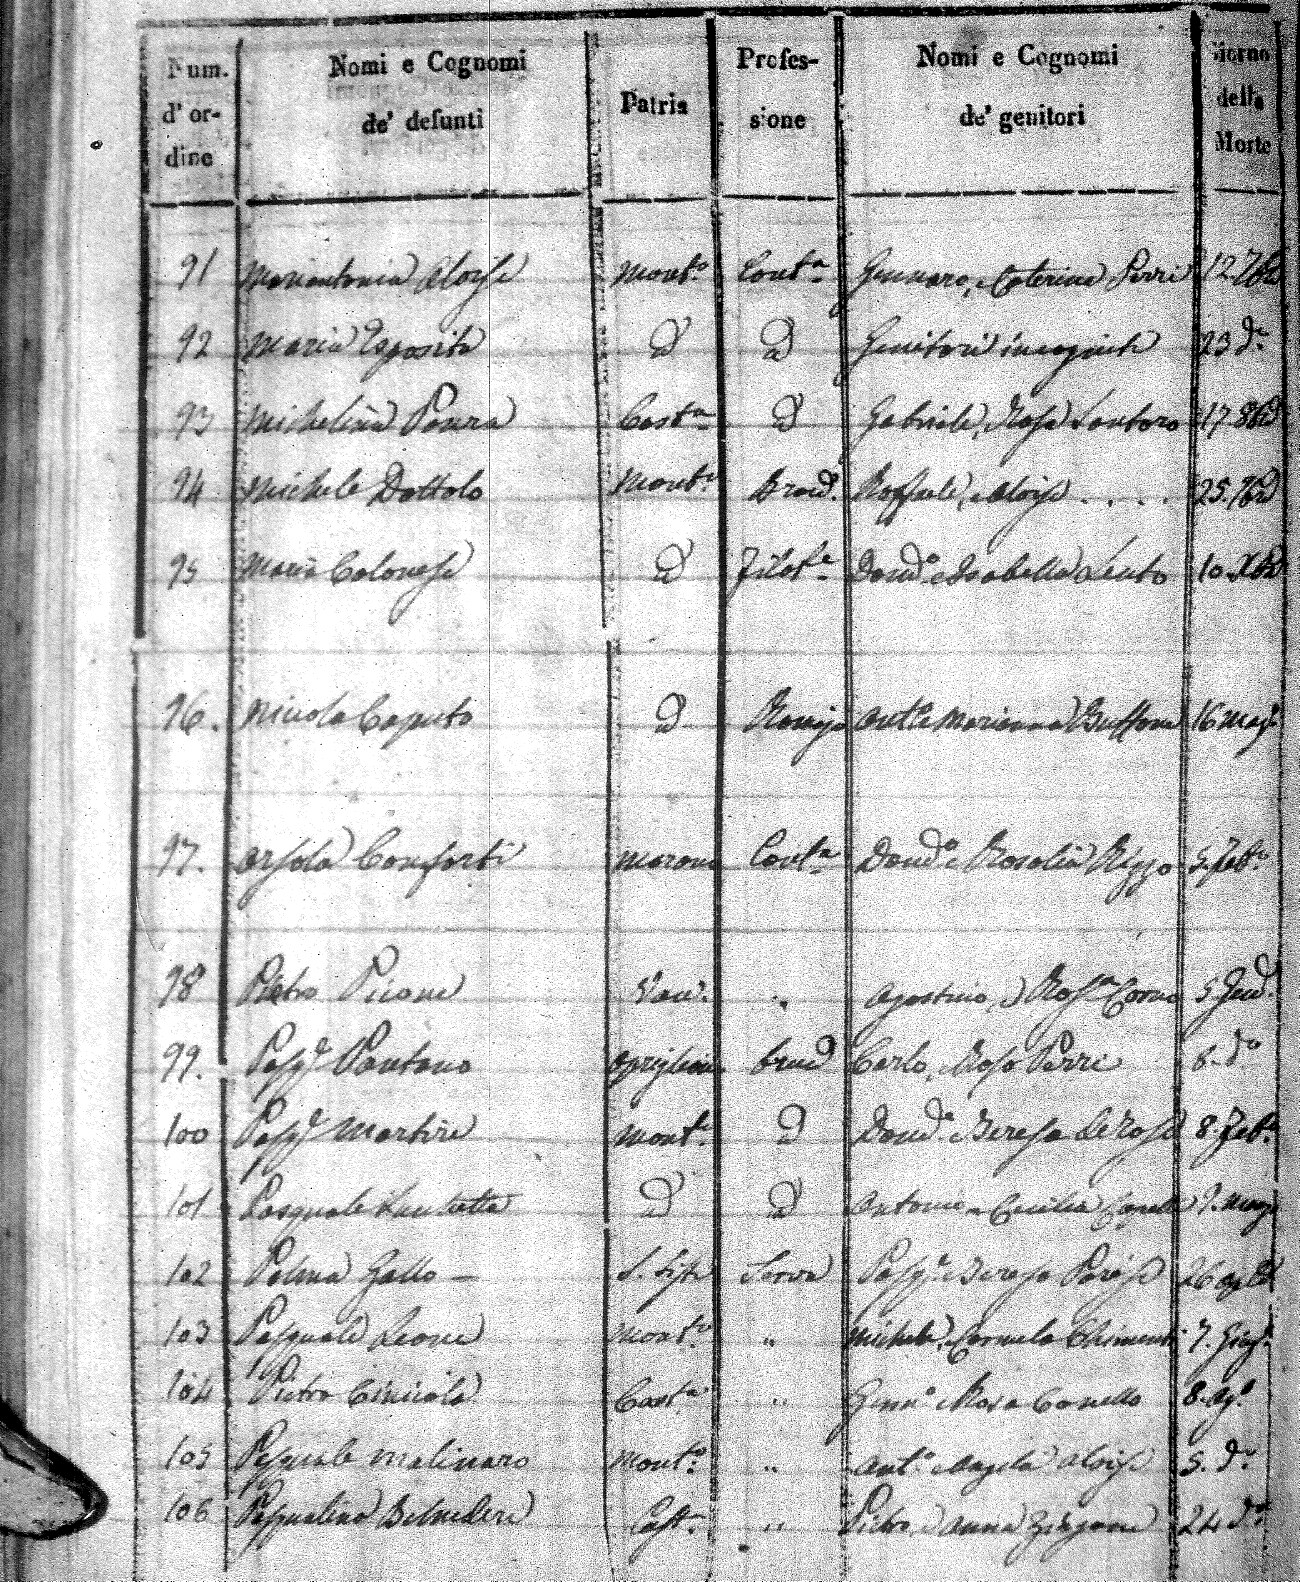 Num. d' ordine | Nomi e Cognomi de' defunti | Patria | Professione | Nomi e Cognomi de' genitori | Giorno della Morte
91 Mariantonia Aloise Mont.o Cont.a Gennaro, e Caterina Perri 12 7bre
92 Maria Esposito d d Genitori incogniti 23 d.o
93 Michelina Panza Cast.o d Gabriele, Rosa Santoro 17 8bre
94 Michele Dottolo Mont.o Brac. Raffaele, e Aloise . . . . 25. 9bre
95 Maria Colonese d Filat.e Dom.o e Isabella Lento 10. Xbre
96. Nicola Caputo d Ant.o e Marianna Buffone 16 mag.o
97. Orsola Conforti Marano Cont.a Dom.o e Rosalia Rizzo 5. Feb.o
98 Pietro Picone " Agostino, e Rosa 5. Gen.
99. Pasq.e Pantano Aprigliano brac. Carlo, Rosa Perri 6. d.o
100 Pasq.e Martire Mont.o d Dom.o e Teresa De Rose 8. Feb.o
101 Pasquale d d Antonio e Cecilia 9. mag
102 Palma Gallo — S. Sisto Serva Pasq.e Teresa Parise 26
103 Pasquale Leone Mont.o " Michele, Carmela Chimenti 7. Giug.
104 Pietro Cast.o " Genn.o e Rosa Conello 8. Ag.o
105 Pasquale Molinaro Mont.o " Ant.o e Angela Aloise 5. d.o
106 Pasqualina Belvedere Cast.o " Pietro, e Anna 24 d.o